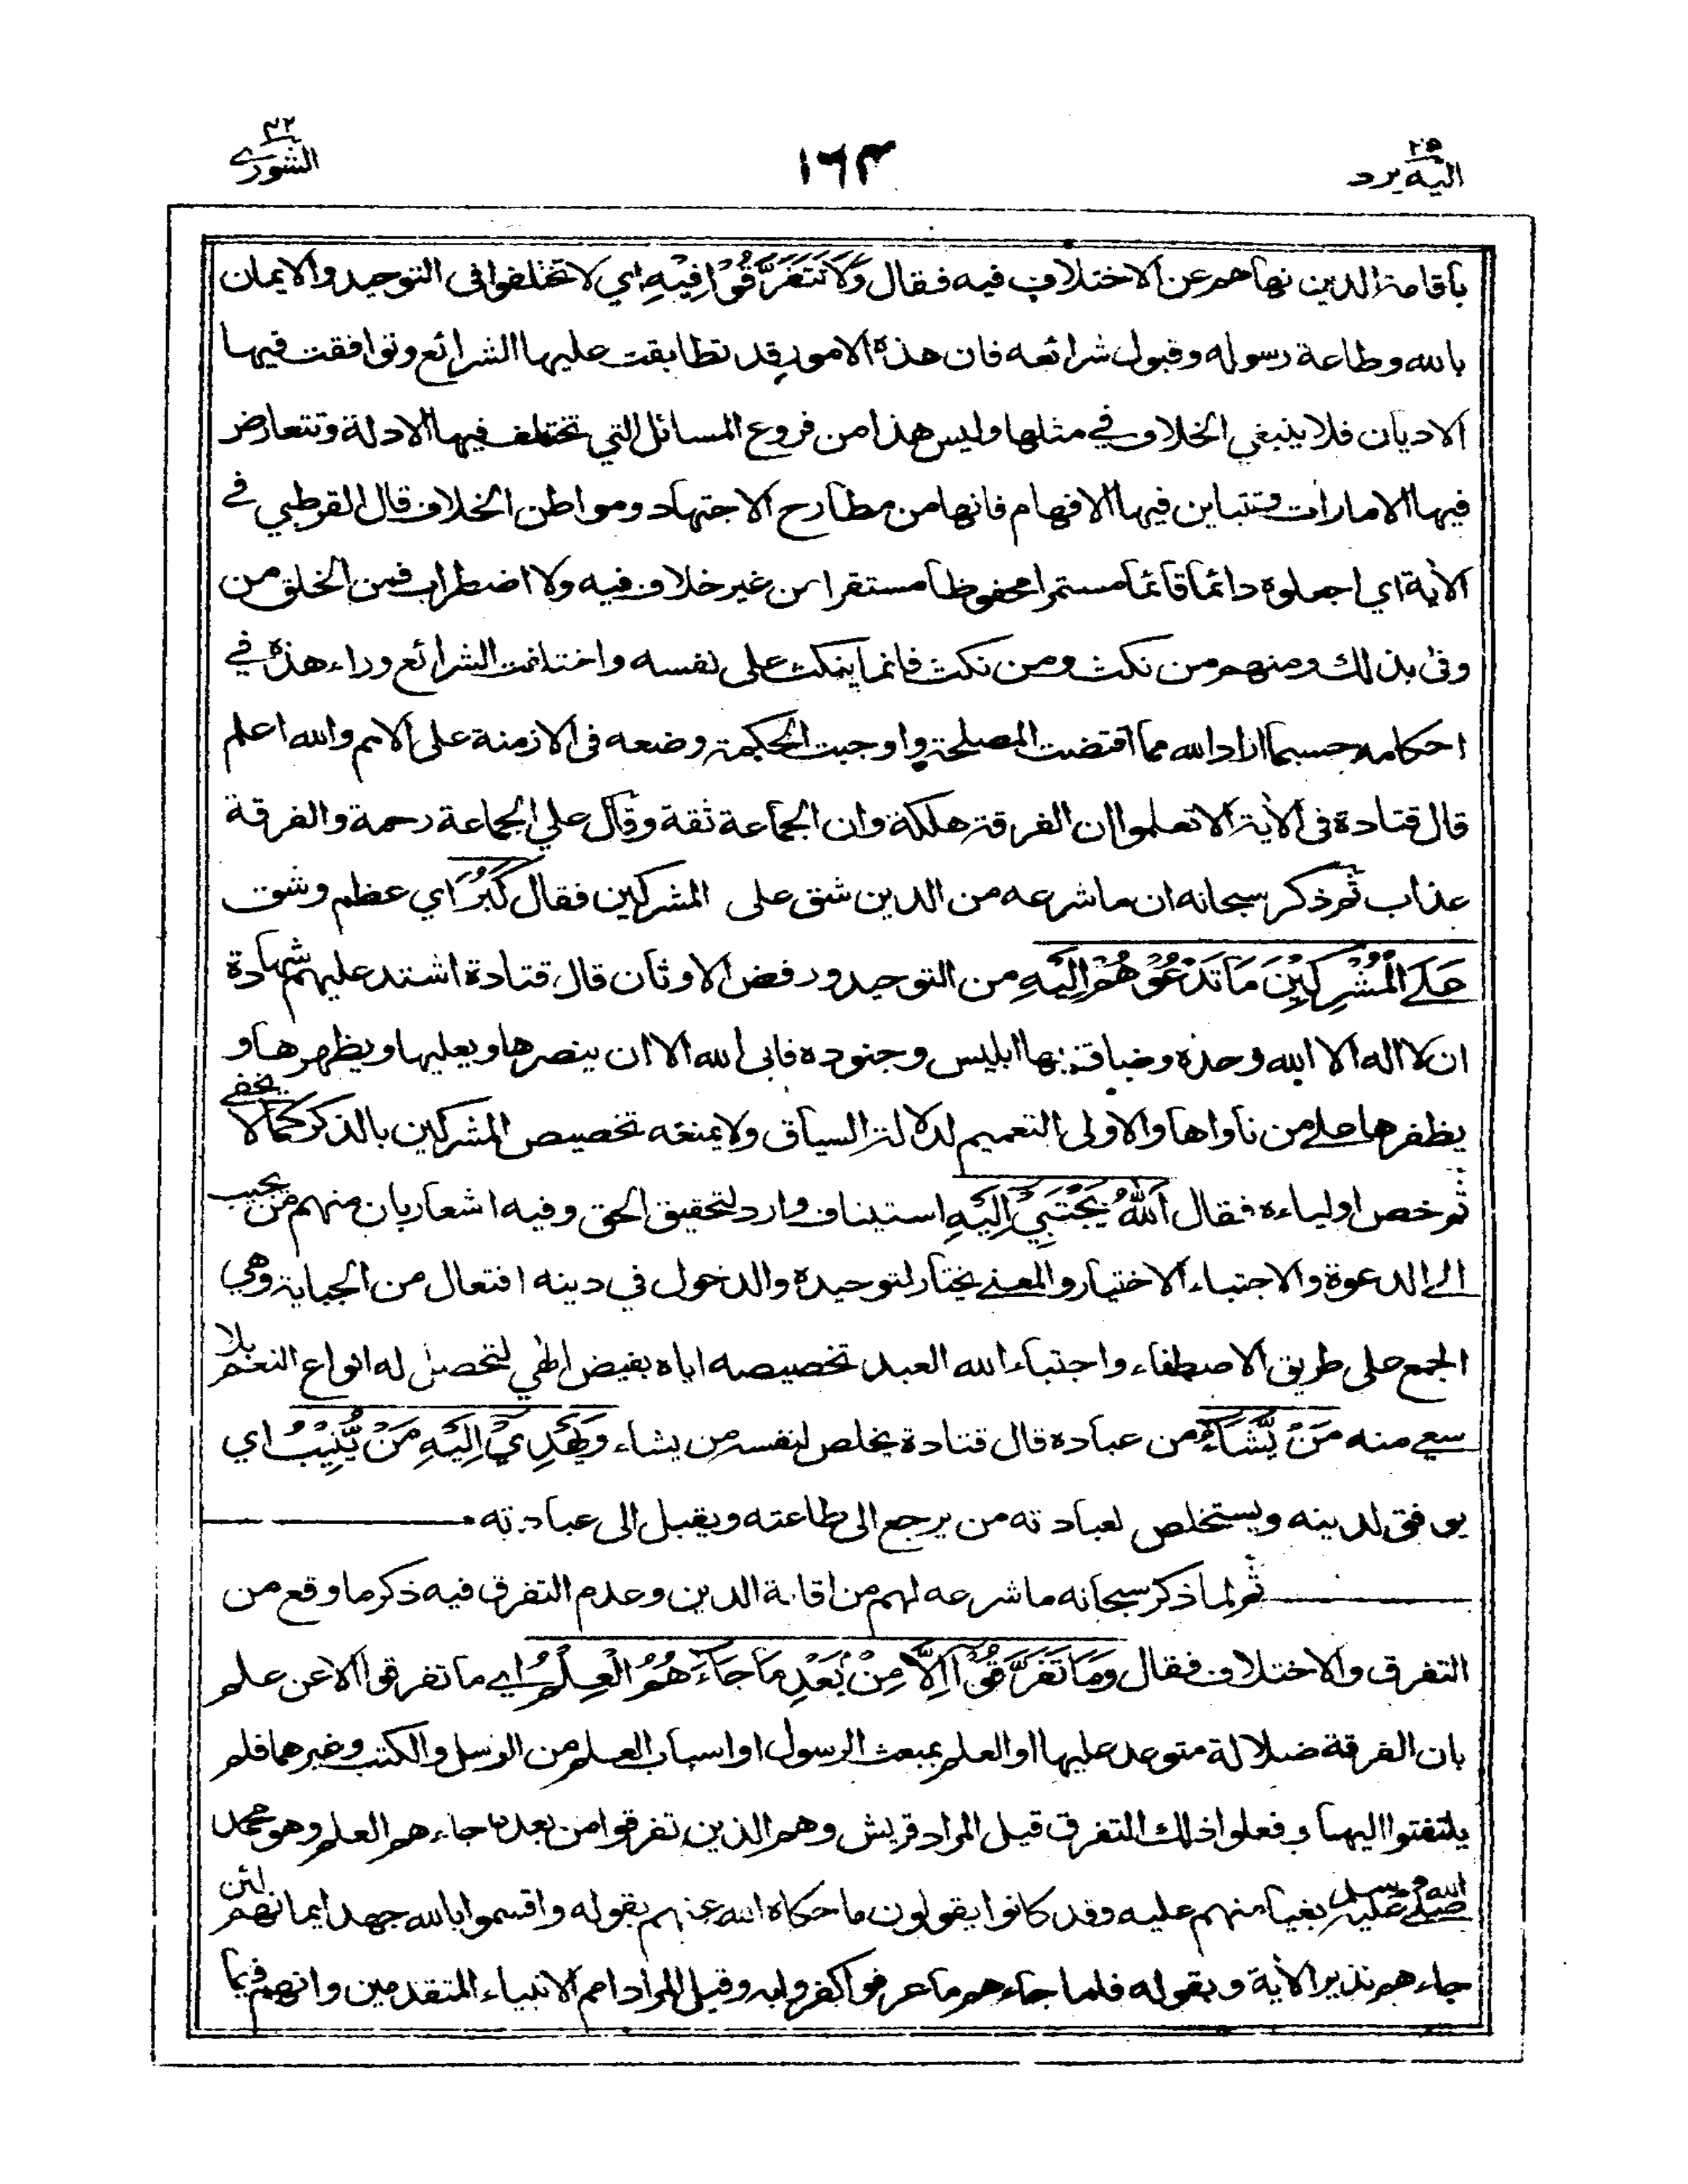 اليه يرد ٢٥
١٦٣
الشورى ٤٢
باقامة الدين نهاهم عن الاختلاف فيه فقال وَلَا تَتَفَرَّقُوْا فِيْهِ اي لا تختلفوا في التوحيد والايمان
بالله وطاعة رسوله وقبول شرائعه فان هذه الامور قد تطابقت عليها الشرائع وتوافقت فيها
الاديان فلا ينبغي الخلاف في مثلها وليس هذا من فروع المسائل التي تختلف فيها الادلة وتتعارض
فيها الامارات وتتباين فيها الافهام فانها من مطارح الاجتهاد ومواطن الخلاف قال القرطبي في
الآية اي اجعلوه دائما قائما مستمرا محفوظا مستقرا من غير خلاف فيه ولا اضطراب فمن الخلق من
وفى بذلك ومنهم من نكث ومن نكث فانما ينكث على نفسه واختلفت الشرائع وراء هذه في
احكامه حسبما اراد الله مما اقتضت المصلحة واوجبت الحكمة وضعه في الازمنة على الامم والله اعلم
قال قتادة في الآية الا تعلموا ان الفرقة هلكة وان الجماعة ثقة وقال علي الجماعة رحمة والفرقة
عذاب ثم ذكر سبحانه ان ما شرعه من الدين شق على المشركين فقال كَبُرَ اي عظم وشق
عَلَى الْمُشْرِكِيْنَ مَا تَدْعُوْهُمْ اِلَيْهِ من التوحيد ورفض الاوثان قال قتادة اشتد عليهم شهادة
ان لا اله الا الله وحده وضاق بها ابليس وجنوده فابى الله الا ان ينصرها ويعليها ويظهرها و
يظفرها على من ناواها والاولى التعميم لدلالة السياق ولا يمنعه تخصيص المشركين بالذكر كما لا يخفى
ثم خص اولياءه فقال اَللّٰهُ يَجْتَبِيْ اِلَيْهِ استيناف وارد لتحقيق الحق وفيه اشعار بان منهم من يجيب
الى الدعوة والاجتباء الاختيار والمعنى يختار لتوحيده والدخول في دينه افتعال من الجباية وهي
الجمع على طريق الاصطفاء واجتباء الله العبد تخصيصه اياه بفيض الهي لتحصل له انواع النعم بلا
سعي منه مَنْ يَّشَاءُ من عباده قال قتادة يخلص لنفسه من يشاء وَيَهْدِيْ اِلَيْهِ مَنْ يُّنِيْبُ اي
يوفق لدينه ويستخلص لعبادته من يرجع الى طاعته ويقبل الى عبادته
ثم لما ذكر سبحانه ما شرعه لهم من اقامة الدين وعدم التفرق فيه ذكر ما وقع من
التفرق والاختلاف فقال وَمَا تَفَرَّقُوْا اِلَّا مِنْ بَعْدِ مَا جَاءَهُمُ الْعِلْمُ اي ما تفرقوا الا عن علم
بان الفرقة ضلالة متوعد عليها او العلم بمبعث الرسول او اسباب العلم من الرسل والكتب وغيرهما فلم
يلتفتوا اليها وفعلوا ذلك التفرق قيل المراد قريش وهم الذين تفرقوا من بعد ما جاءهم العلم وهو محمد
صلى الله عليه وسلم بغيا منهم عليه وقد كانوا يقولون ما حكاه الله عنهم بقوله واقسموا بالله جهد ايمانهم لئن
جاءهم نذير الآية وبقوله فلما جاءهم ما عرفوا كفروا به وقيل المراد امم الانبياء المتقدمين وانهم فيما